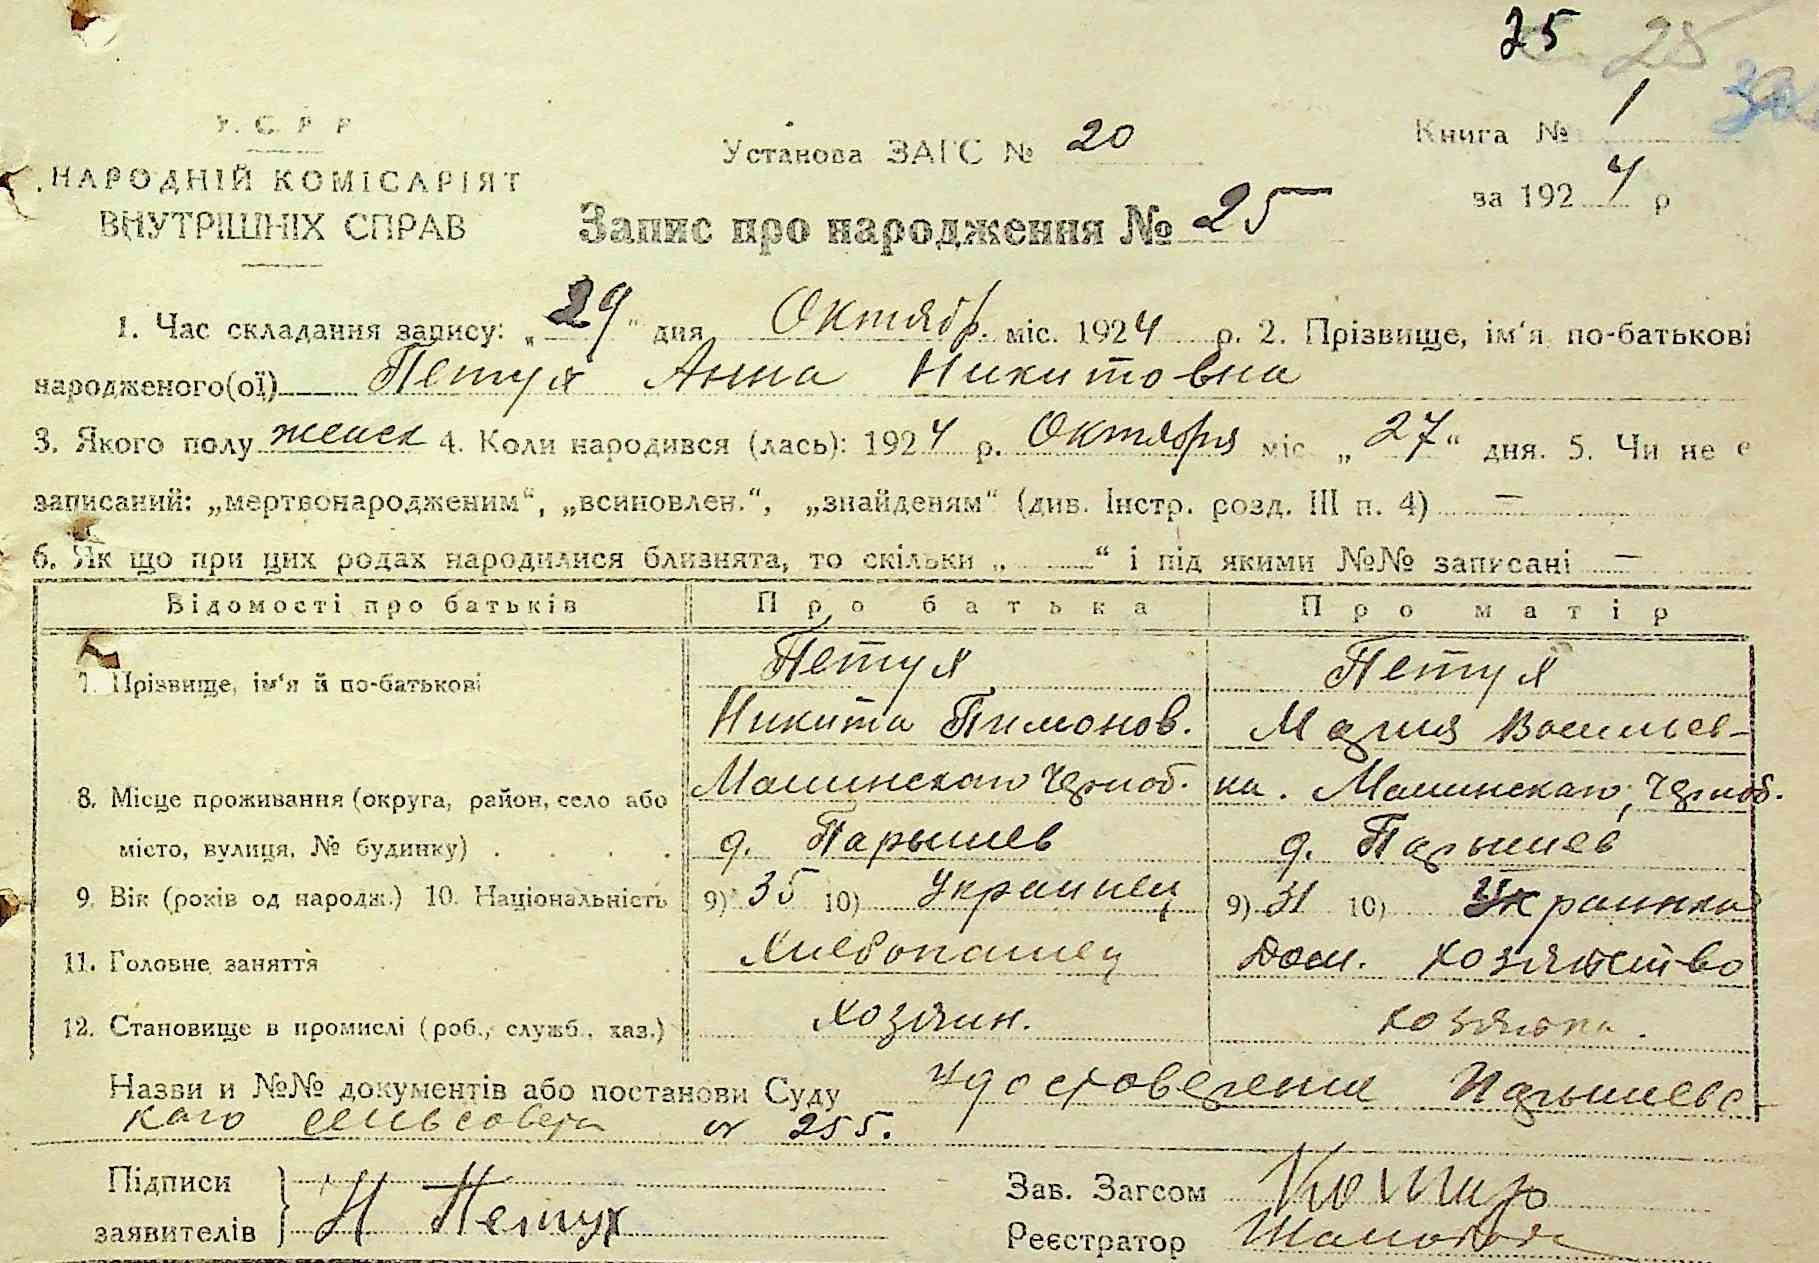 25 25
У. С. Р. Р.
Установа ЗАГС № 20
Книга № 1
НАРОДНІЙ КОМІСАРІЯТ
за 1924 р
ВНУТРІШНІХ СПРАВ
Запис про народження № 25
1. Час складання запису: „29" дня Октябр. міс. 1924 р. 2. Прізвище, ім‘я по-батькові
народженого(ої) Петух Анна Никитовна
3. Якого полу женск 4. Коли народився (лась): 1924 р. Октября міс „27“ дня. 5. Чи не є
записаний: „мертвонародженим“, „всиновлен.“, „знайденям“ (див. Інстр. розд. III п. 4) —
6. Як що при цих родах народилися близнята, то скільки „ “ і під якими №№ записані —
Відомості про батьків Про батька Про матір
7. Прізвище, ім‘я й по-батькові Петух Петух
Никита Тимонов. Мария Васильев-
8. Місце проживання (округа, район, село або Малинскаго Черноб. на. Малинскаго, Черноб.
місто, вулиця, № будинку) . . . . д. Парышев д. Парышев
9. Вік (років од народж.) 10. Національність 9) 35 10) Украинец 9) 31 10) Украинка
11. Головне заняття Хлебопашец Дом. хозяйство
12. Становище в промислі (роб., служб., хаз.) хозяин. хозяйка.
Назви и №№ документів або постанови Суду Удостоверение Парышевс-
каго сельсовета от 255.
Підписи Зав. Загсом
заявителів Н Петух
Реєстратор